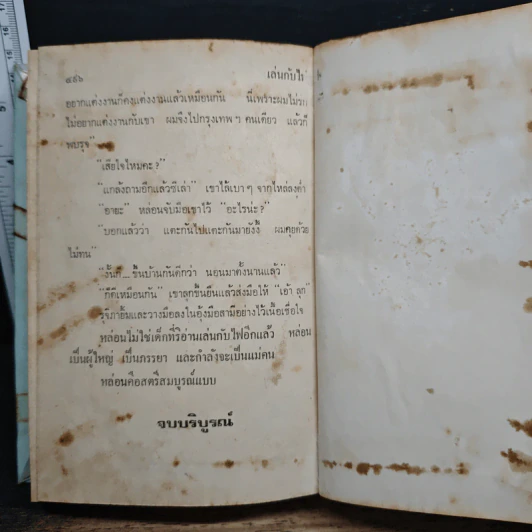 ๔๙๖ เล่นกับไฟ
อยากแต่งงานก็คงแต่งงานแล้วเหมือนกัน นี่เพราะผมไม่รัก
ไม่อยากแต่งงานกับเขา ผมจึงไปกรุงเทพ ฯ คนเดียว แล้วก็
พบรุจ”
“เสียใจไหมคะ?”
“แกล้งถามอีกแล้วซีเล่า” เขาไล้เบา ๆ จากไหล่ลงต่ำ
“อายะ” หล่อนจับมือเขาไว้ “อะไรน่ะ?”
“บอกแล้วว่า แตะกันไปแตะกันมายังงี้ ผมคุยด้วย
ไม่ทน”
“งั้นก็... ขึ้นบ้านกันดีกว่า นอนมาตั้งนานแล้ว”
“ก็ดีเหมือนกัน” เขาลุกขึ้นยืนแล้วส่งมือให้ “เอ้า ลุก”
รุจีภายิ้มและวางมือลงในอุ้งมือสามีอย่างไว้เนื้อเชื่อใจ
หล่อนไม่ใช่เด็กที่ริอ่านเล่นกับไฟอีกแล้ว หล่อน
เป็นผู้ใหญ่ เป็นภรรยา และกำลังจะเป็นแม่คน
หล่อนคือสตรีสมบูรณ์แบบ
จบบริบูรณ์
15
17